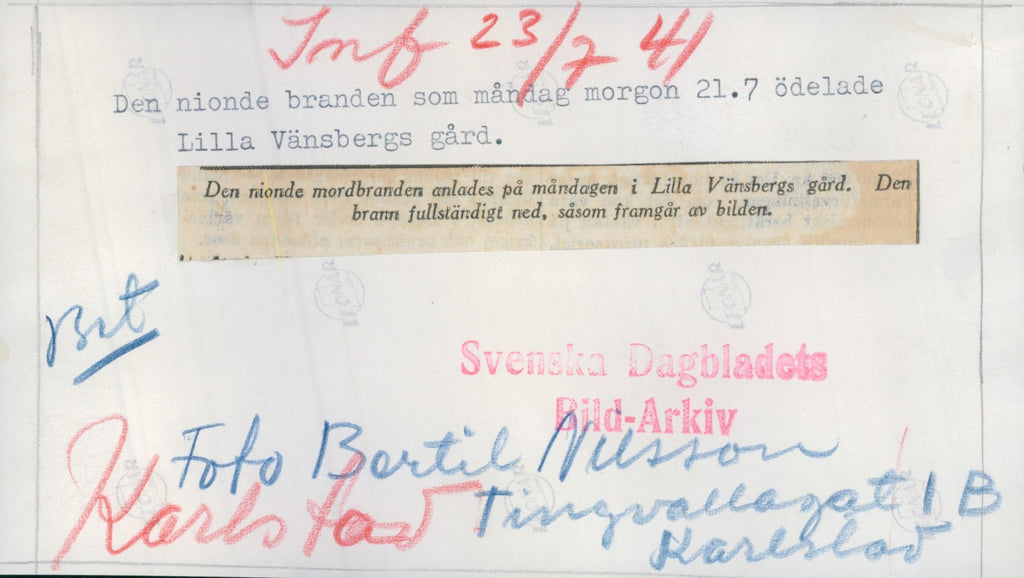 Inf 23/7 41
Den nionde branden som måndag morgon 21.7 ödelade
Lilla Vänsbergs gård.
Den nionde mordbranden anlades på måndagen i Lilla Vänsbergs gård. Den
brann fullständigt ned, såsom framgår av bilden.
LEONAR
LEONAR
Bet
Svenska Dagbladets
Bild-Arkiv
Foto Bertil Nilsson
Karlstad
Tingvallagat 1 B
Karlstad